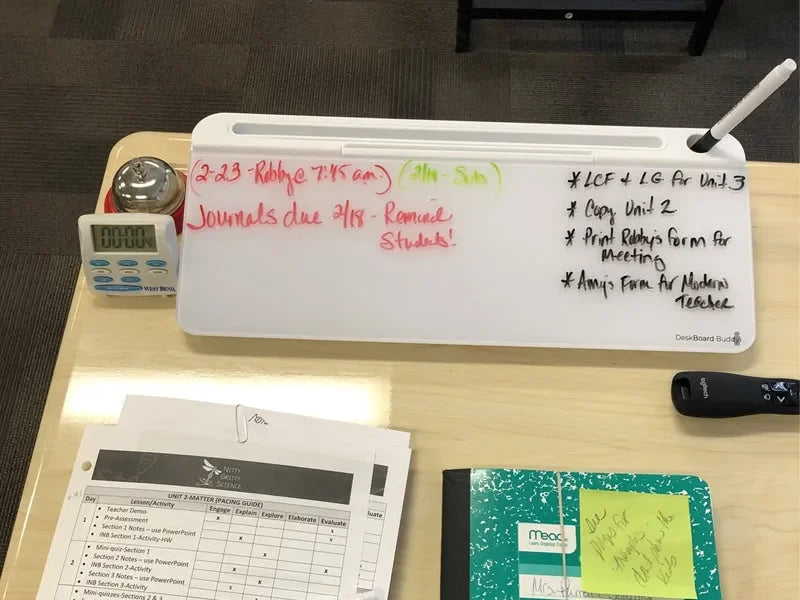 (2-23 - Robby @ 7:45 am.) (2/19 - Sub)
Journals due 2/18 - Remind
Students!
* LCF + LG for Unit 3
* Copy Unit 2
* Print Robby's Form for
Meeting
* Amy's Form for Modern
Teacher
DeskBoard Buddy
00:00
WEST BEND
logitech
NITTY
GRITTY
SCIENCE
UNIT 2-MATTER (PACING GUIDE)
Day Lesson/Activity Engage Explain Explore Elaborate Evaluate
1
• Teacher Demo- x
• Pre-Assessment x
• Section 1 Notes – use PowerPoint x
• INB Section 1-Activity-HW x
2
• Mini-quiz-Section 1 x
• Section 2 Notes – use PowerPoint x
• INB Section 2-Activity x
• Section 3 Notes – use PowerPoint x
• INB Section 3-Activity x
• Mini-quizzes-Sections 2 & 3
Evaluate
Mead
Learn. Organize. Create.
See
pages for
don't show the
kids
Mrs.